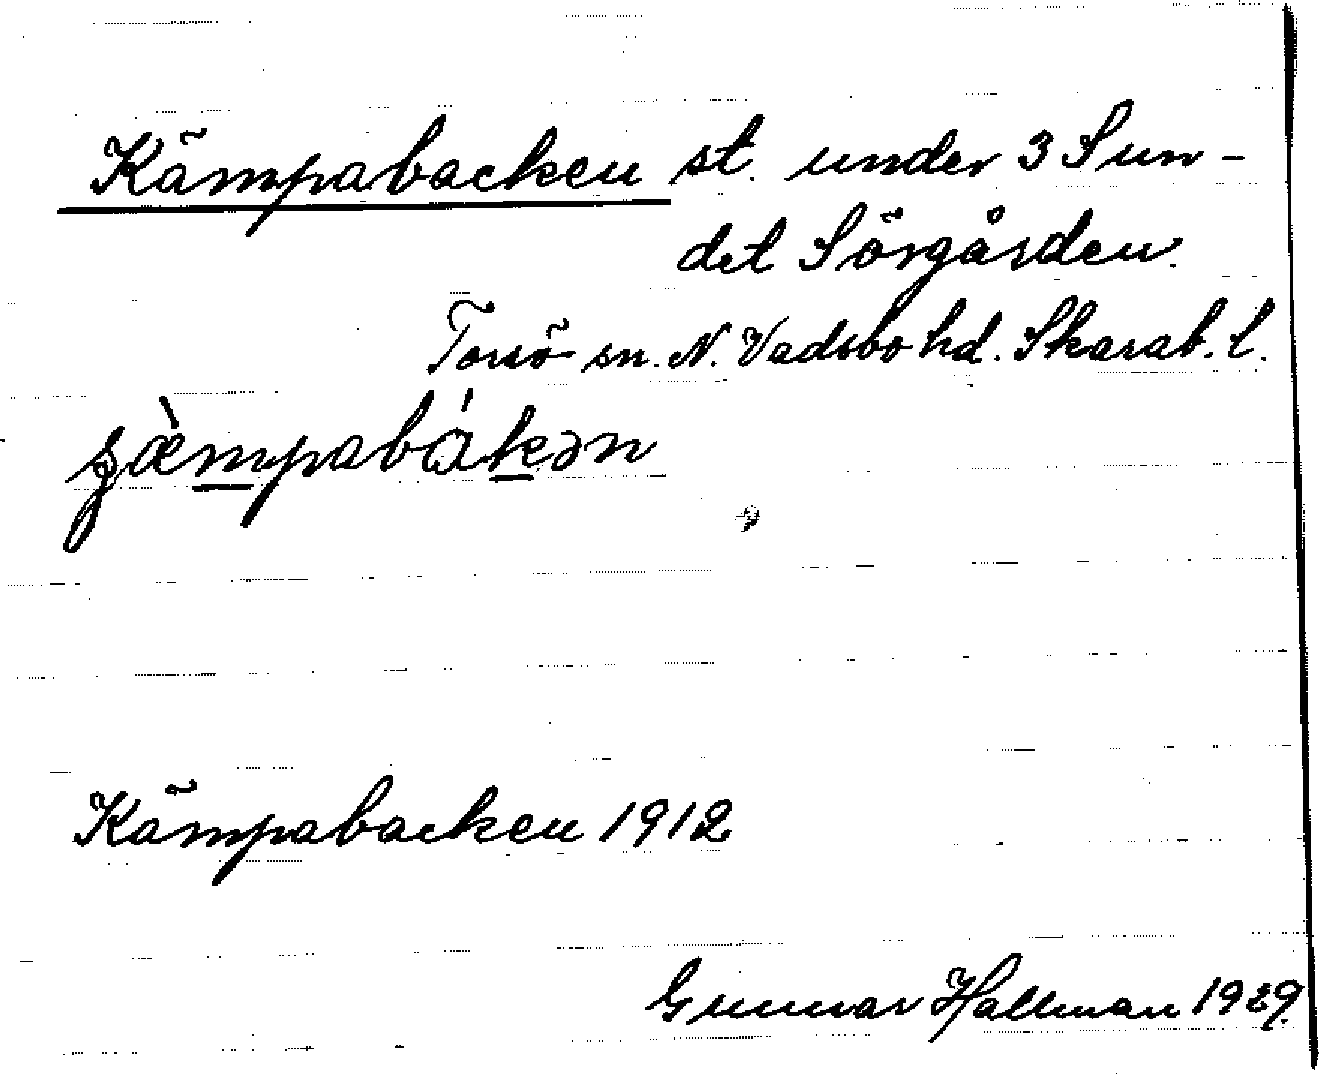 Kämpabacken st. under 3 Sun-
det Sörgården.
Torsö sn. N. Vadsbo hd. Skarab. l.
ʂæ̀mpabákən
Kämpabacken 1912
Gunnar Hallman 1929.